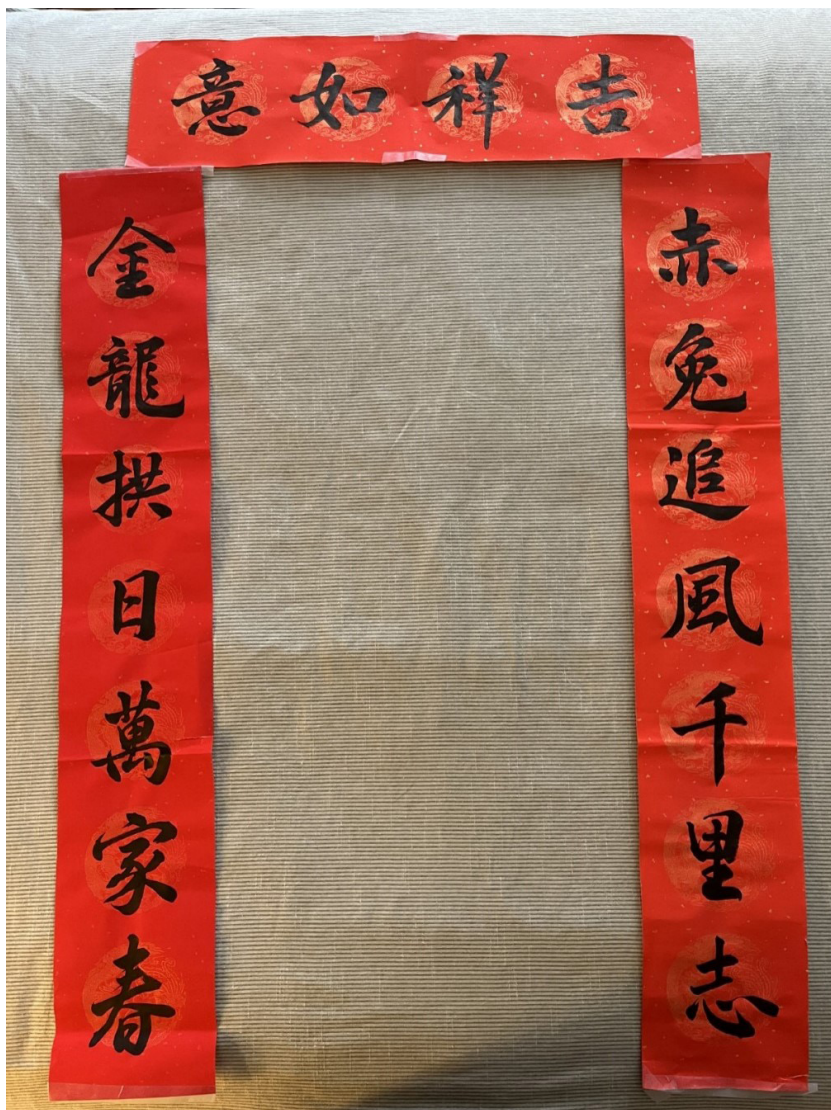 吉祥如意
赤兔追風千里志
金龍拱日萬家春